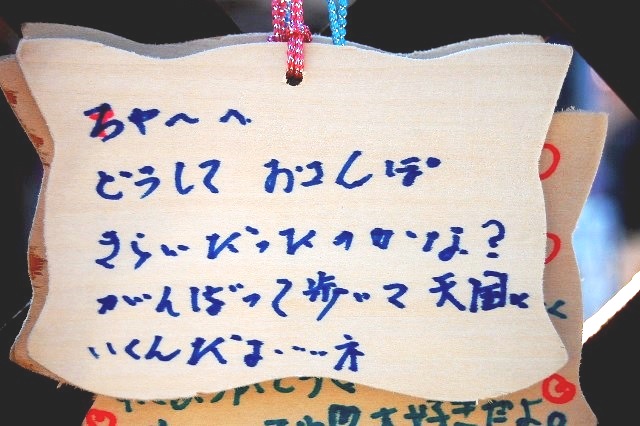 ちゃ～へ
どうして おさんぽ
きらいだったのかな?
がんばって歩いて天国へ
いくんだよ・・・・ネ
大好きだよ。